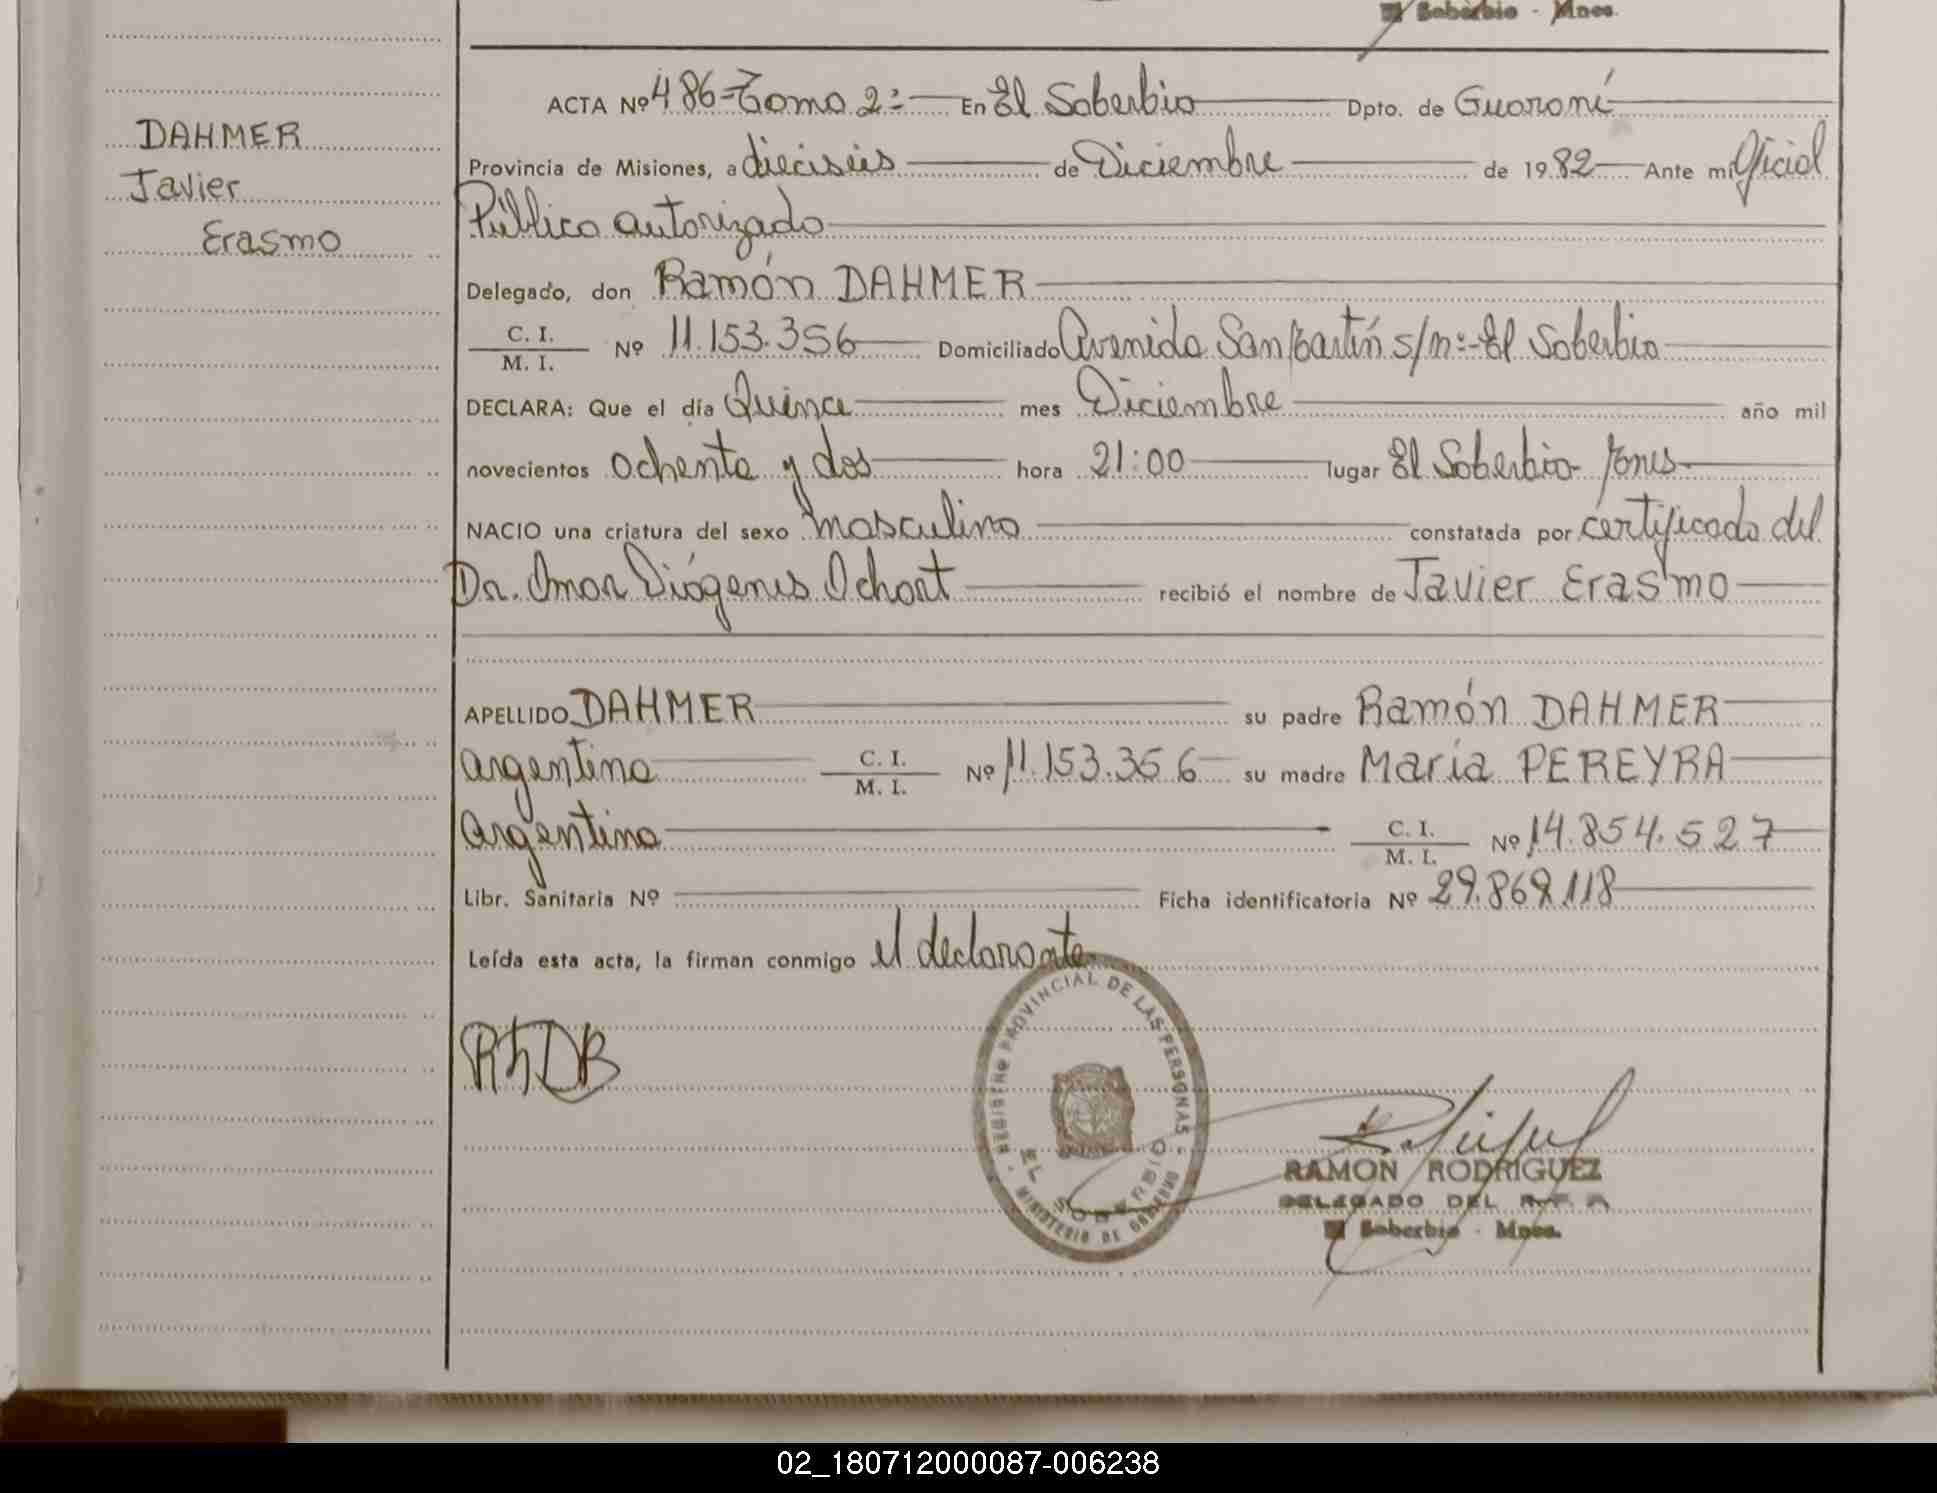 Soberbio - Mnes.
DAHMER
Javier
Erasmo
ACTA Nº 486 - Tomo 2º - En El Soberbio Dpto. de Guaraní
Provincia de Misiones, a dieciseis de Diciembre de 1982 Ante mi Oficial
Público autorizado
Delegado, don Ramón DAHMER
C. I.
M. I. Nº 11.153.356 Domiciliado Avenida San Martín s/nº - El Soberbio
DECLARA: Que el día Quince mes Diciembre año mil
novecientos ochenta y dos hora 21:00 lugar El Soberbio Mnes
NACIO una criatura del sexo masculino constatada por certificado del
Dr. Omar Diógenes Ochort recibió el nombre de Javier Erasmo
APELLIDO DAHMER su padre Ramón DAHMER
argentino C. I.
M. I. Nº 11.153.356 su madre María PEREYRA
argentina C. I.
M. I. Nº 14.854.527
Libr. Sanitaria Nº Ficha identificatoria Nº 29.869.118
Leída esta acta, la firman conmigo el declarante
REGISTRO PROVINCIAL DE LAS PERSONAS
EL SOBERBIO
MINISTERIO DE GOBIERNO
RAMON RODRIGUEZ
DELEGADO DEL R. P. P.
El Soberbio - Mnes.
02_180712000087-006238